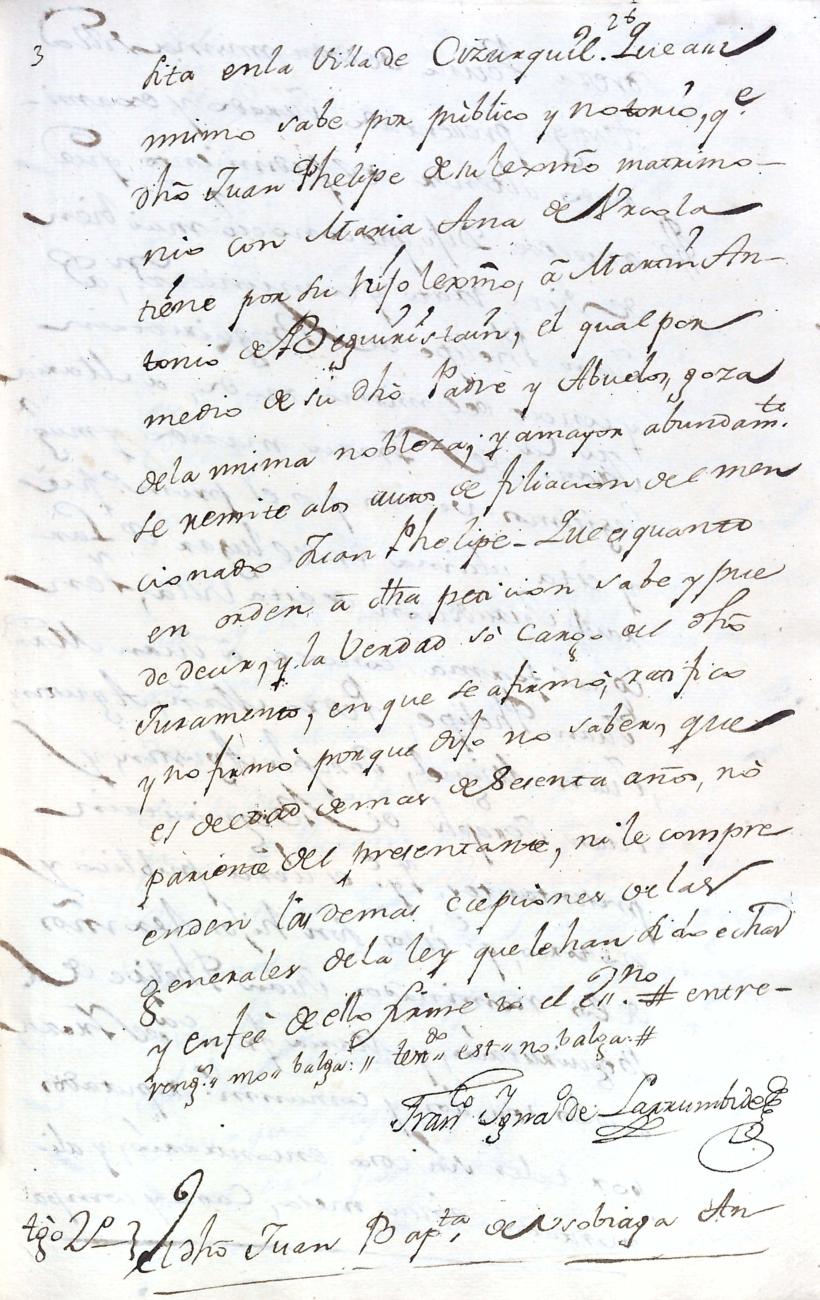 3
26
sita en la Villa de Cizurquil. Que assi
mismo sabe por público y notorio, q.e
dho Juan Phelipe de su lexmo matrimo-
nio con Maria Ana de Urcola
tiene por su hijo lexmo, â Martin An-
tonio de Beguiristain, el qual por
medio de su dho Padre y Abuelos, goza
dela misma nobleza; y amayor abundam.te
se remite alos autos de filiacion del men
cionado Juan Phelipe- Que es quanto
en orden â dha peticion sabe y pue
de decir, y la verdad só cargo del dho
Juramento, en que se afirmó, ratifico
y no firmó por que dijo no saber, que
es de edad de mas de Sesenta años, nò
pariente del presentante, ni le compre
enden las demas ecepciones de las
generales de la ley que le han sido echas
y en feè de ello firmé io el Ess.no # entre-
reng.s mo" balga: " ten.do est" no balga: #
Fran.co Ygna.o de Larrumbide
tgo 2.o } El dho Juan Bap.ta de Usobiaga An-